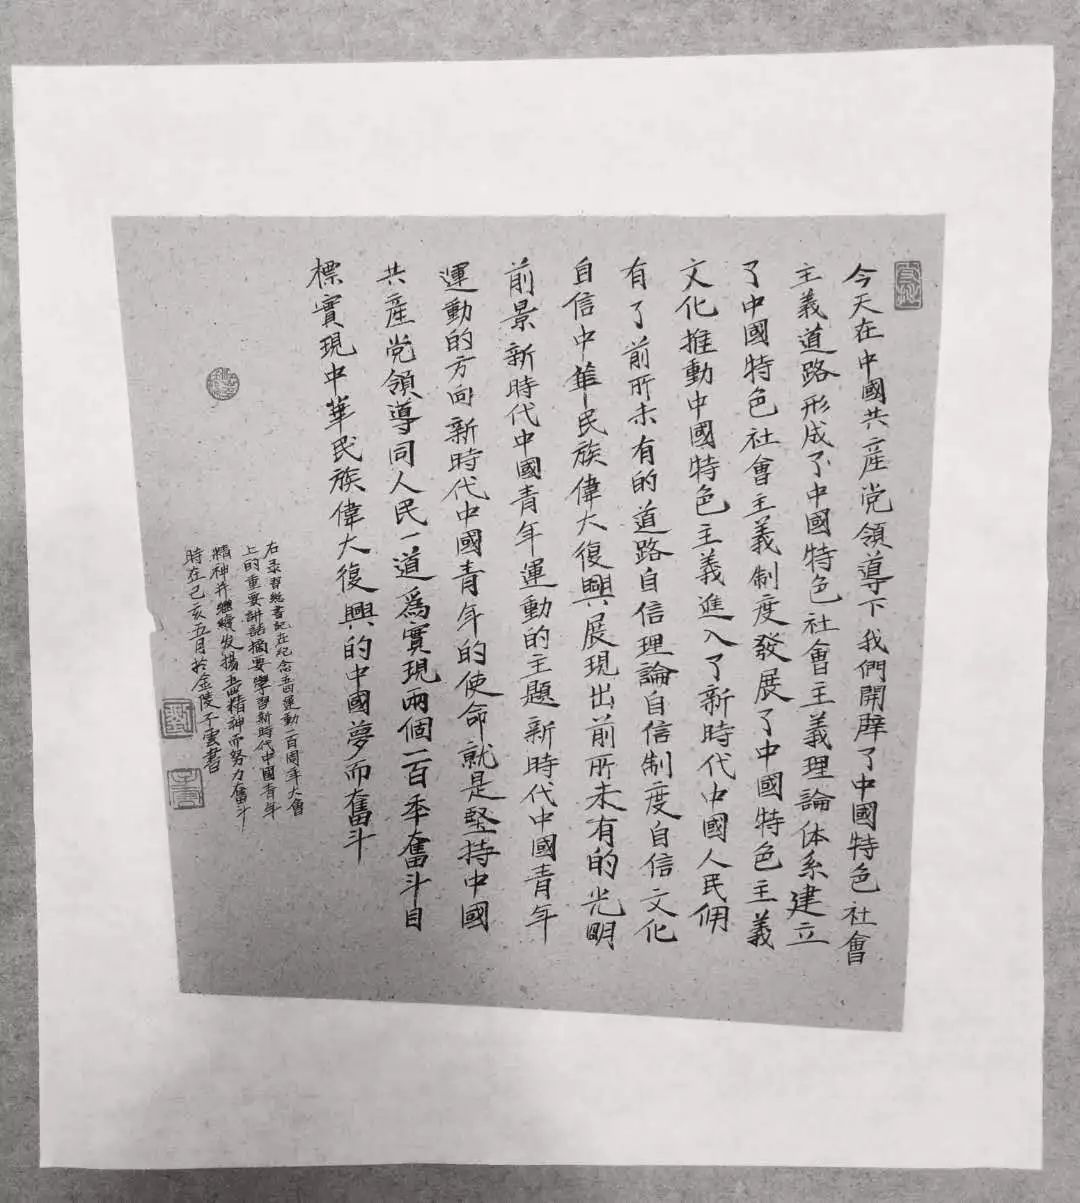 今天在中國共産党領導下我們開辟了中國特色社會
主義道路形成了中國特色社會主義理論体系建立
了中國特色社會主義制度發展了中國特色主義
文化推動中國特色主義進入了新時代中國人民佣
有了前所未有的道路自信理論自信制度自信文化
自信中華民族偉大復興展現出前所未有的光明
前景新時代中國青年運動的主題新時代中國青年
運動的方向新時代中國青年的使命就是堅持中國
共産党領導同人民一道為實現兩個一百季奮斗目
標實現中華民族偉大復興的中國夢而奮斗
右录習総書記在纪念五四運動一百周年大會
上的重要讲話摘要學習新時代中國青年
精神并繼續发揚五四精神而努力奮斗
時在己亥五月於金陵子雲書